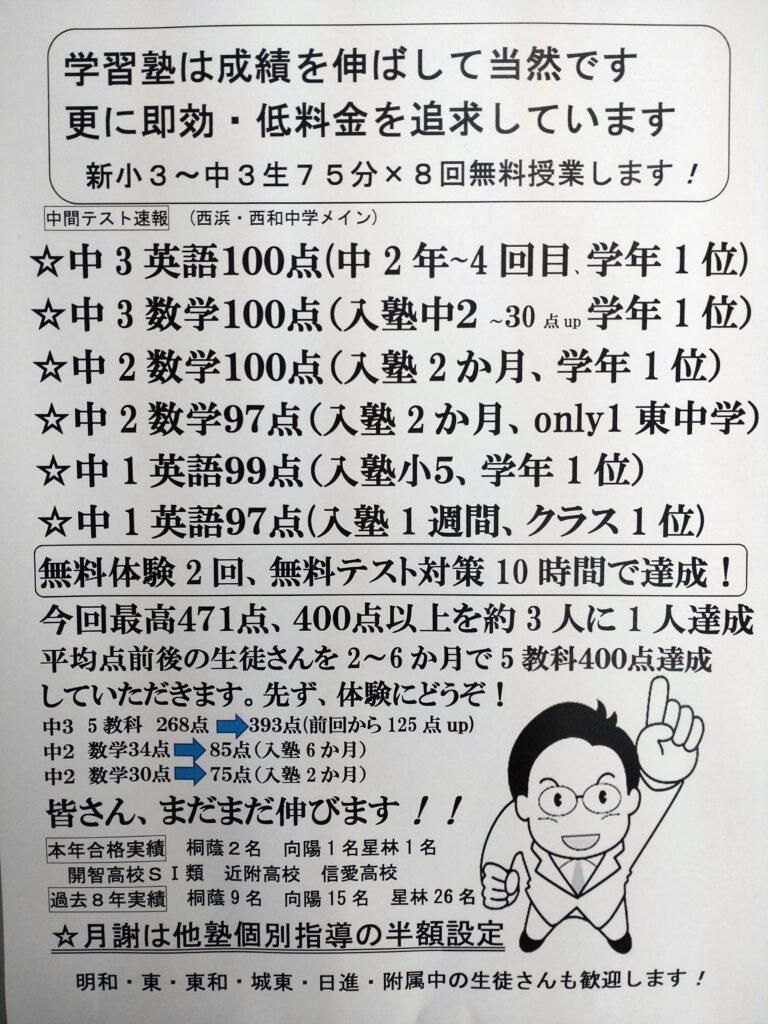 学習塾は成績を伸ばして当然です
更に即効・低料金を追求しています
新小３～中３生７５分×８回無料授業します！
中間テスト速報 （西浜・西和中学メイン）
☆中３英語100点(中２年~4回目、学年１位)
☆中３数学100点（入塾中2 ~30点up 学年１位）
☆中２数学100点（入塾２か月、学年１位）
☆中２数学97点（入塾２か月、only1東中学）
☆中１英語99点（入塾小5、学年１位）
☆中１英語97点(入塾１週間、クラス１位)
無料体験２回、無料テスト対策10時間で達成！
今回最高471点、400点以上を約３人に１人達成
平均点前後の生徒さんを２～６か月で５教科400点達成
していただきます。先ず、体験にどうぞ！
中3 ５教科 268点 ➡ 393点(前回から125点up)
中2 数学34点 ➡ 85点（入塾６か月）
中2 数学30点 ➡ 75点（入塾２か月）
皆さん、まだまだ伸びます！！
本年合格実績 桐蔭２名 向陽１名星林１名
開智高校ＳⅠ類 近附高校 信愛高校
過去８年実績 桐蔭９名 向陽15名 星林26名
☆月謝は他塾個別指導の半額設定
明和・東・東和・城東・日進・附属中の生徒さんも歓迎します！